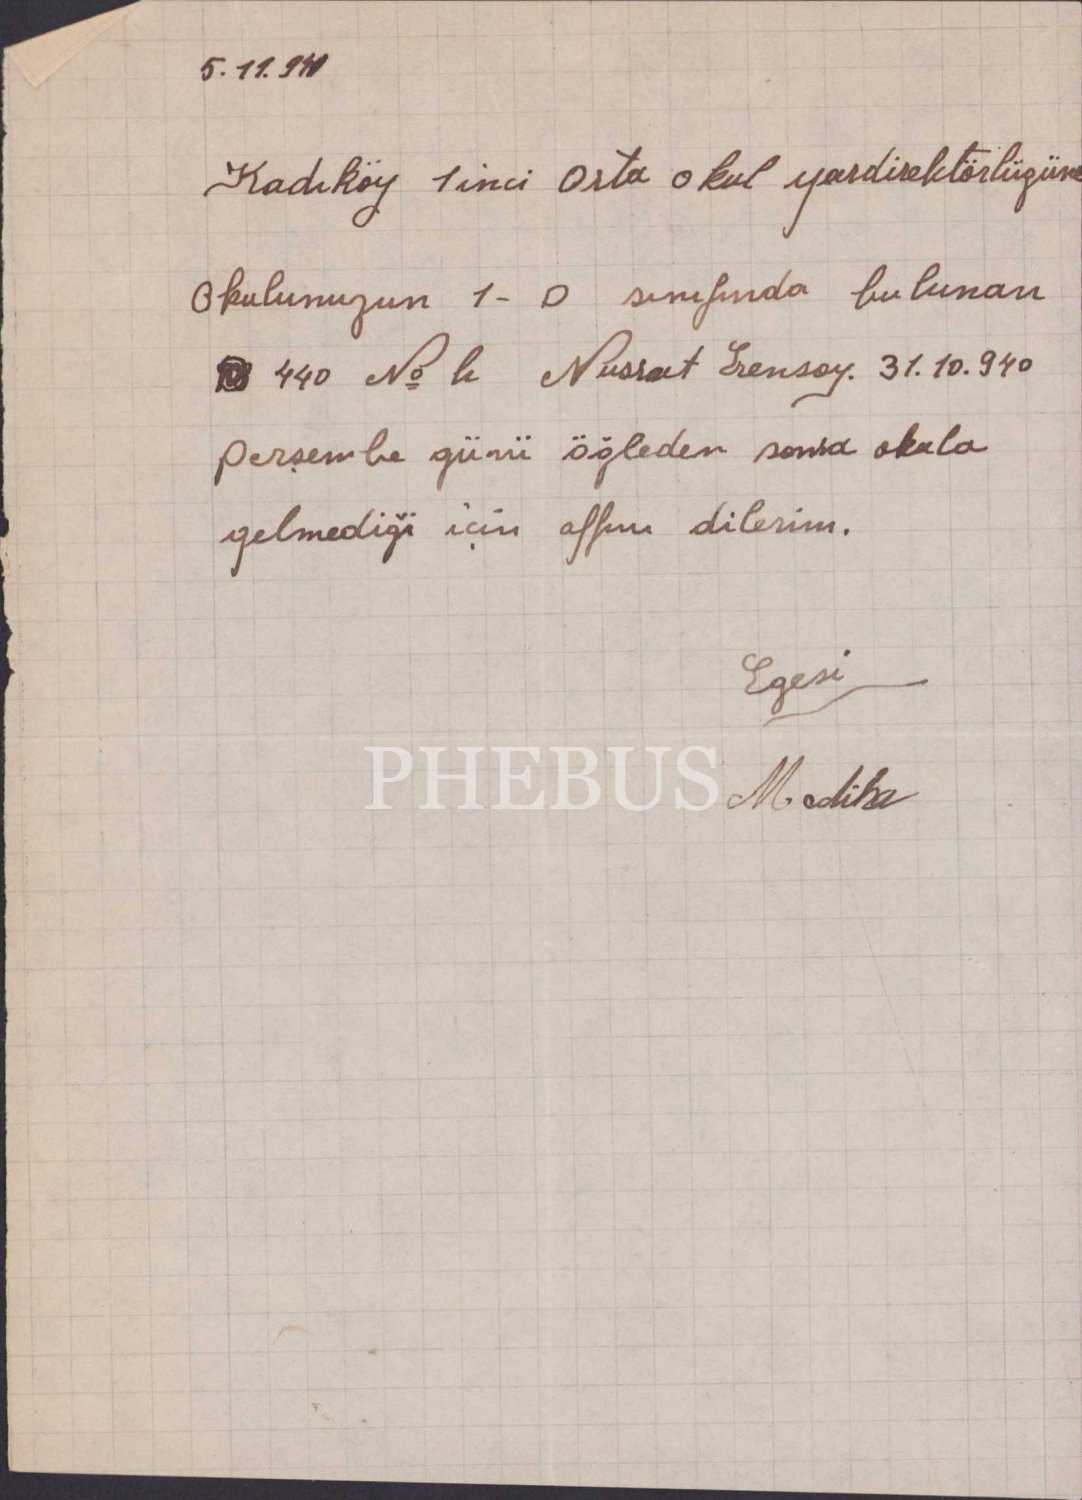 5.11.940
Kadıköy 1inci Orta okul yardirektörlügüne
Okulunuzun 1-D sınıfında bulunan
440 No lı Nusrat Erensoy. 31.10.940
perşembe günü öğleden sonra okula
gelmediği için affını dilerim.
Egesi
PHEBUS Mediha